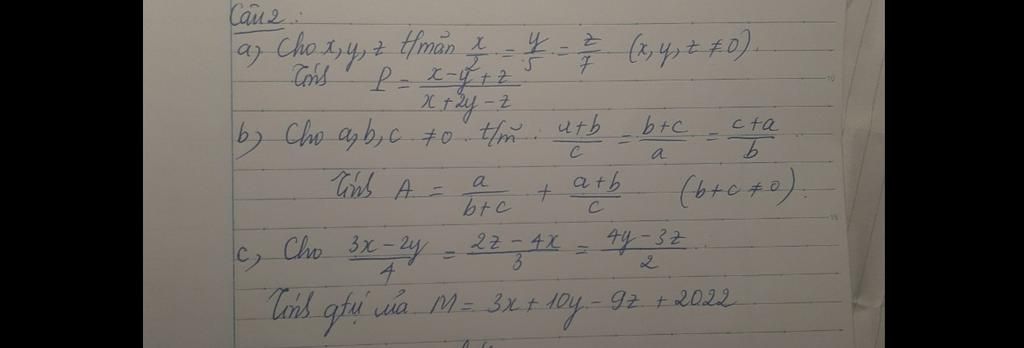 Câu 2:
a) Cho x, y, z t/mãn x/2 = y/5 = z/7 (x, y, z ≠ 0).
Tính P = (x - y + z)/(x + 2y - z)
b) Cho a, b, c ≠ 0 t/m: (a+b)/c = (b+c)/a = (c+a)/b
Tính A = a/(b+c) + (a+b)/c (b+c ≠ 0).
c, Cho (3x - 2y)/4 = (2z - 4x)/3 = (4y - 3z)/2
Tính gtrị của M = 3x + 10y - 9z + 2022